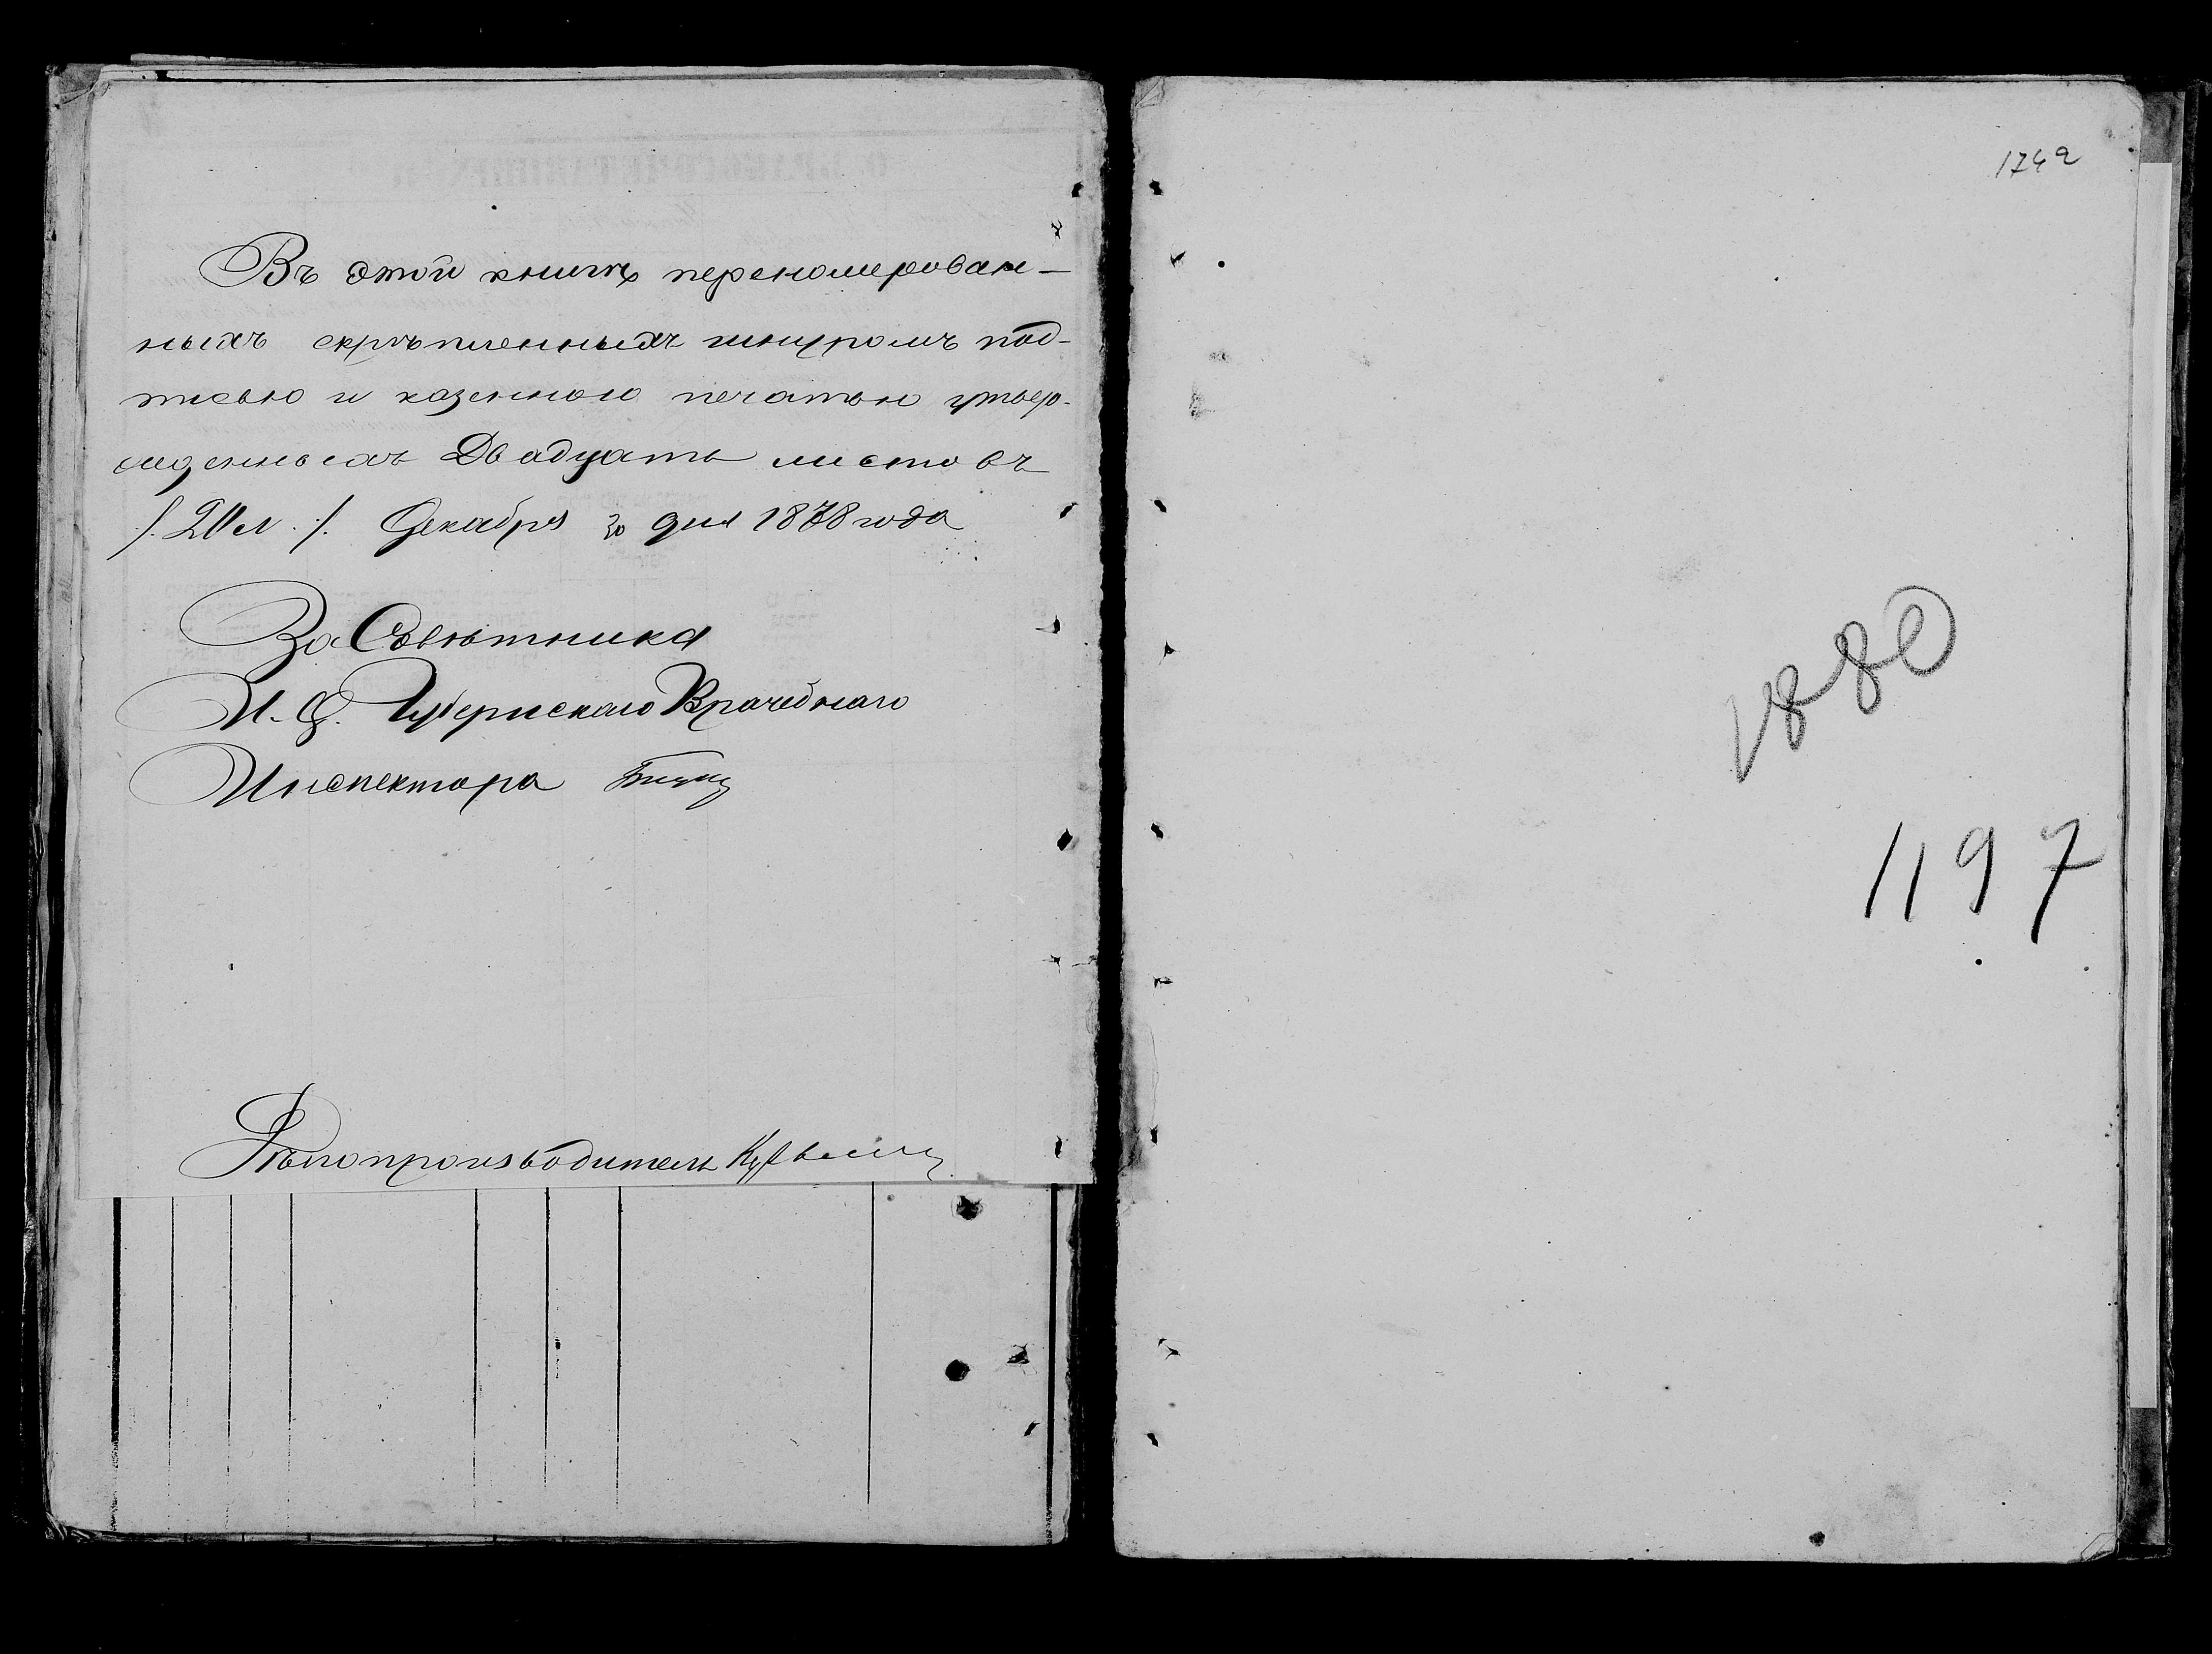 Въ этой книгѣ переномерован-
ныхъ скрѣпленныхъ шнуромъ под-
писью и казенною печатью утвер-
жденныхъ Двадцать листовъ
/. 20 л. /. Декабря 20 дня 1878 года
За Совѣтника
И. Д. Губернскаго Врачебнаго
Инспектора
Дѣлопроизводитель
1880
1197